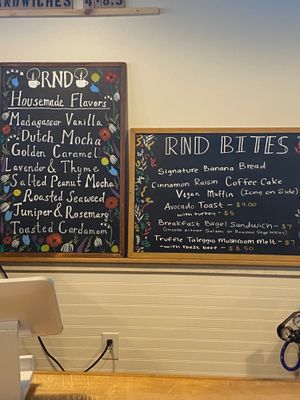 RND
Housemade Flavors
Madagascar Vanilla
Dutch Mocha
Golden Caramel
Lavender & Thyme
Salted Peanut Mocha
Roasted Seaweed
Juniper & Rosemary
Toasted Cardamom
RND BITES
Signature Banana Bread
Cinnamon Raisin Coffee Cake
Vegan Muffin (Icing on Side)
Avocado Toast - $4.00
with turkey - $6
Breakfast Bagel Sandwich - $7
Truffle Taleggio Mushroom Melt - $7
with roast beef - $8.50